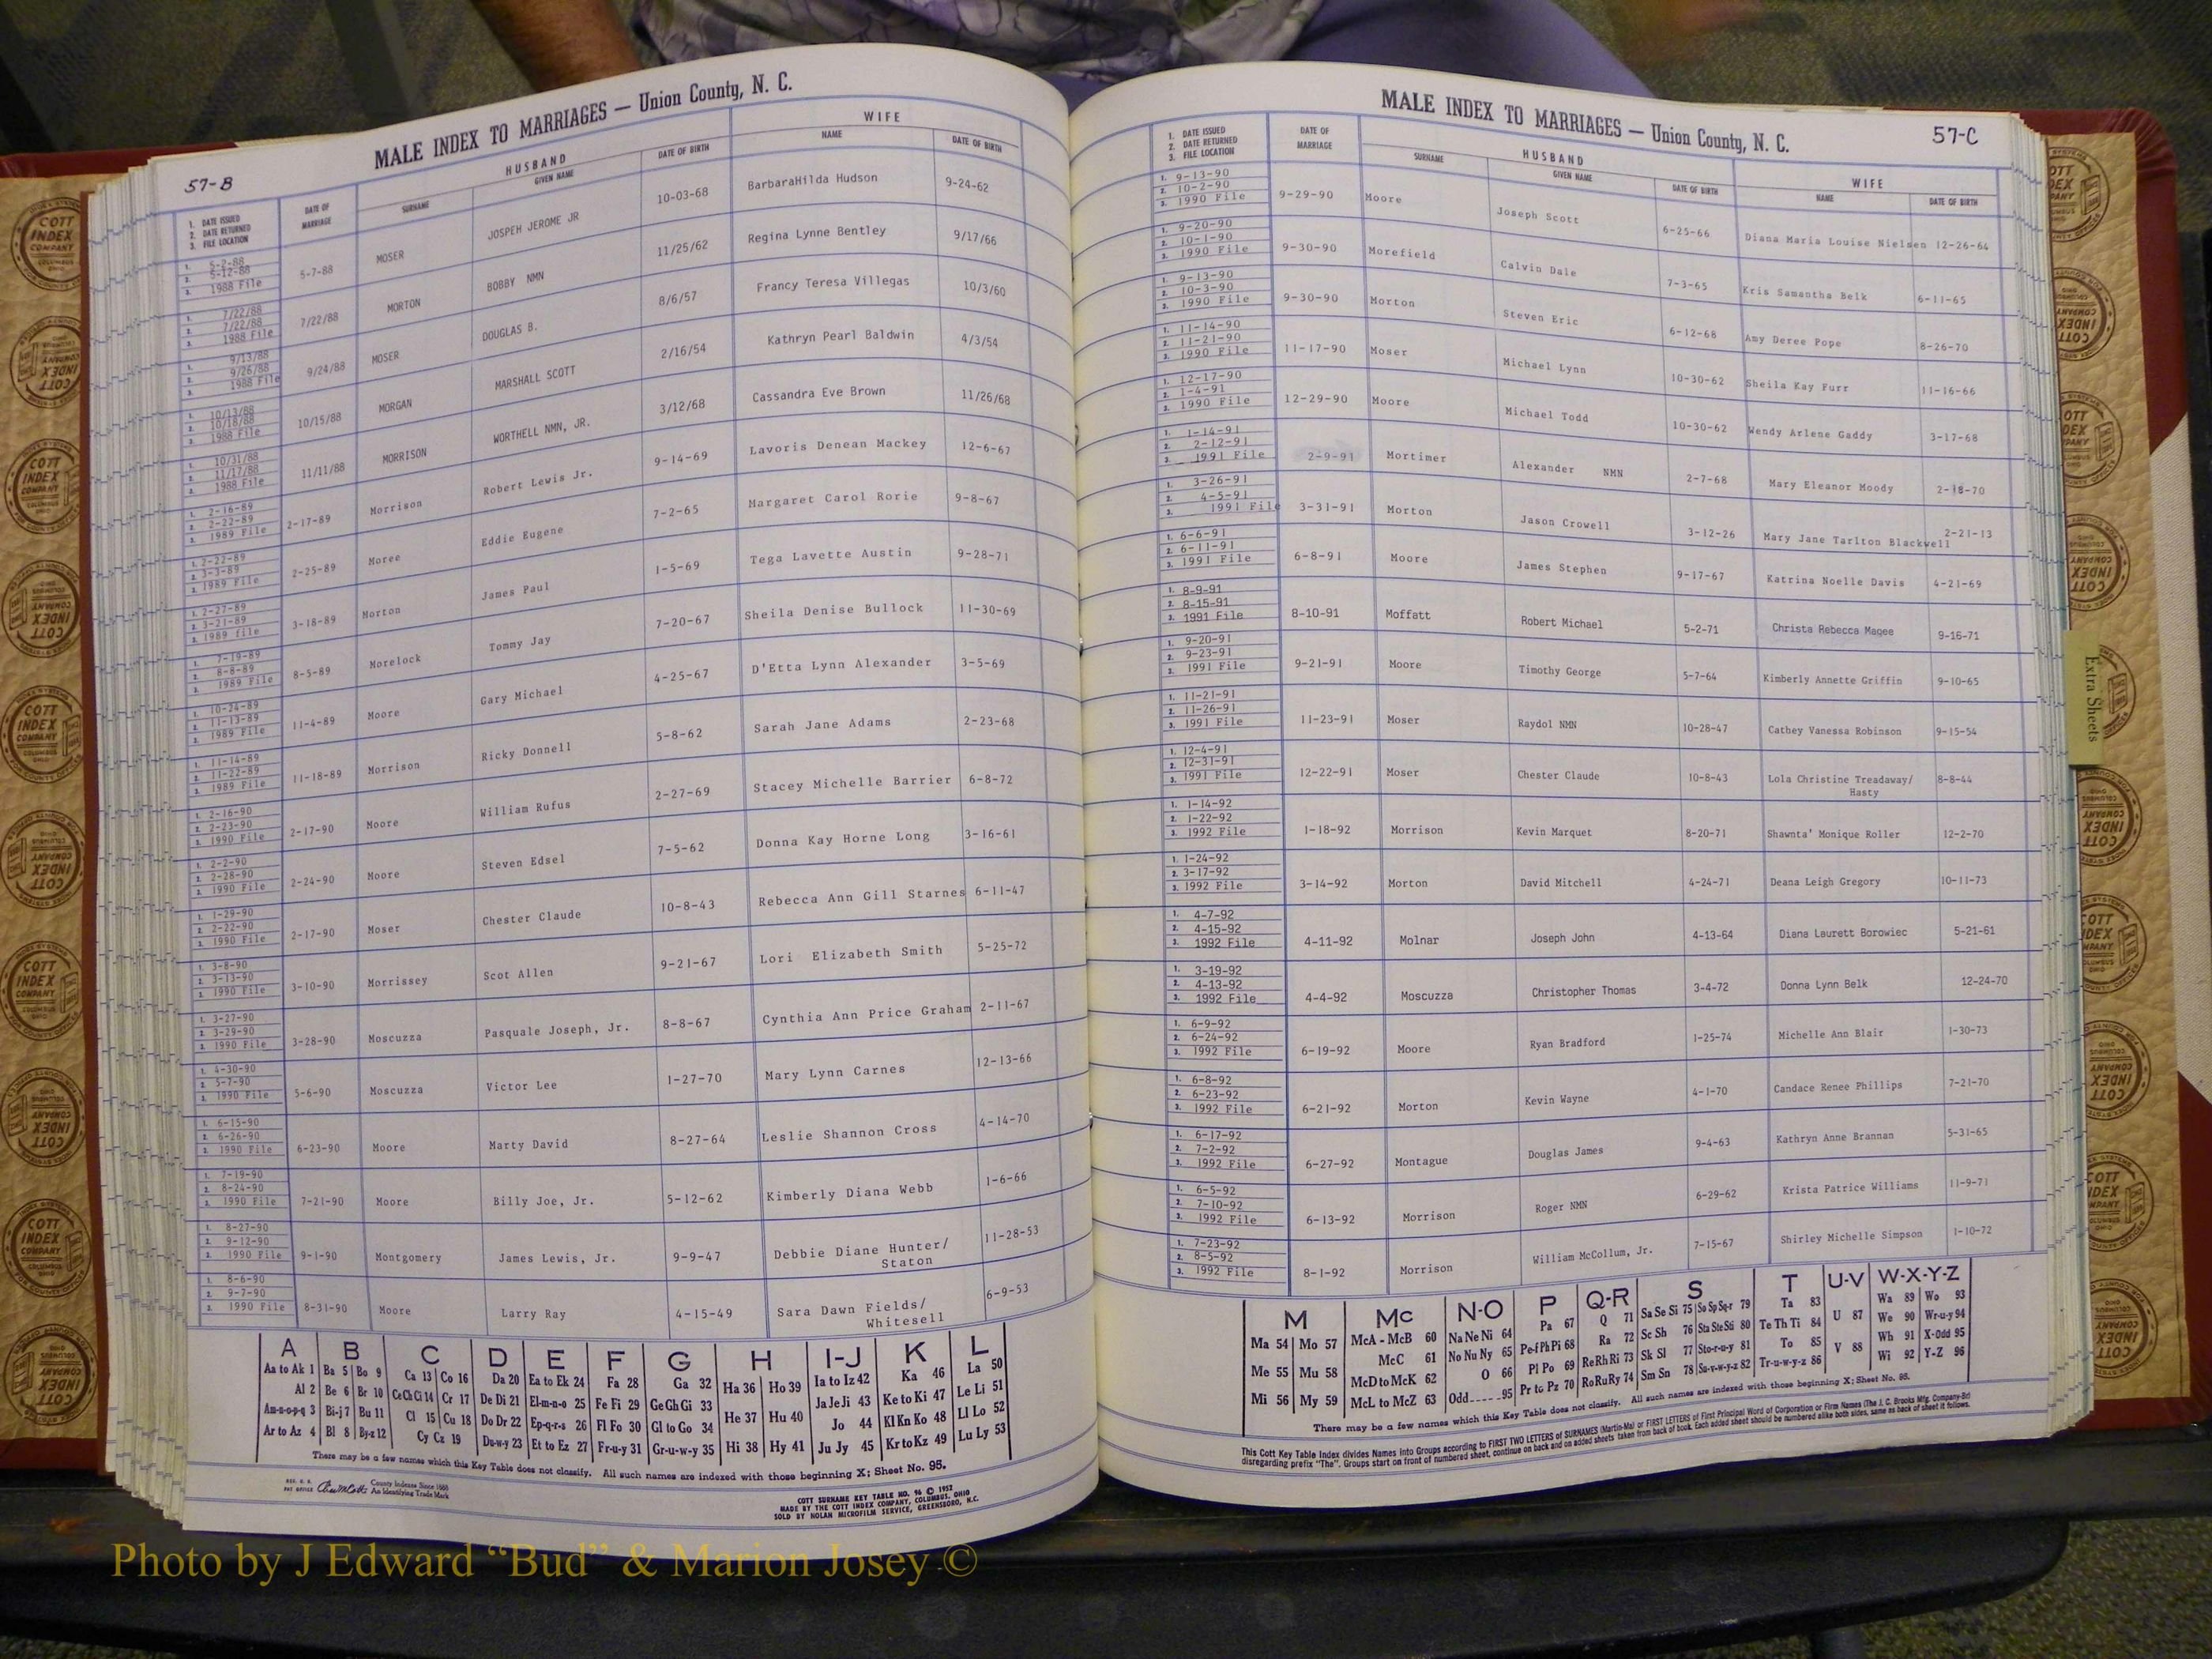 57-B
MALE INDEX TO MARRIAGES — Union County, N. C.
1. DATE ISSUED 2. DATE RETURNED 3. FILE LOCATION DATE OF MARRIAGE HUSBAND SURNAME GIVEN NAME DATE OF BIRTH WIFE NAME DATE OF BIRTH
1. 5-2-88 2. 5-12-88 3. 1988 File 5-7-88 MOSER JOSPEH JEROME JR 10-03-68 BarbaraHilda Hudson 9-24-62
1. 7/22/88 2. 7/22/88 3. 1988 File 7/22/88 MORTON BOBBY NMN 11/25/62 Regina Lynne Bentley 9/17/66
1. 9/13/88 2. 9/26/88 3. 1988 File 9/24/88 MOSER DOUGLAS B. 8/6/57 Francy Teresa Villegas 10/3/60
1. 10/13/88 2. 10/18/88 3. 1988 File 10/15/88 MORGAN MARSHALL SCOTT 2/16/54 Kathryn Pearl Baldwin 4/3/54
1. 10/31/88 2. 11/17/88 3. 1988 File 11/11/88 MORRISON WORTHELL NMN, JR. 3/12/68 Cassandra Eve Brown 11/26/68
1. 2-16-89 2. 2-22-89 3. 1989 File 2-17-89 Morrison Robert Lewis Jr. 9-14-69 Lavoris Denean Mackey 12-6-67
1. 2-22-89 2. 3-3-89 3. 1989 File 2-25-89 Moree Eddie Eugene 7-2-65 Margaret Carol Rorie 9-8-67
1. 2-27-89 2. 3-21-89 3. 1989 file 3-18-89 Morton James Paul 1-5-69 Tega Lavette Austin 9-28-71
1. 7-19-89 2. 8-8-89 3. 1989 File 8-5-89 Morelock Tommy Jay 7-20-67 Sheila Denise Bullock 11-30-69
1. 10-24-89 2. 11-13-89 3. 1989 File 11-4-89 Moore Gary Michael 4-25-67 D'Etta Lynn Alexander 3-5-69
1. 11-14-89 2. 11-22-89 3. 1989 File 11-18-89 Morrison Ricky Donnell 5-8-62 Sarah Jane Adams 2-23-68
1. 2-16-90 2. 2-23-90 3. 1990 File 2-17-90 Moore William Rufus 2-27-69 Stacey Michelle Barrier 6-8-72
1. 2-2-90 2. 2-28-90 3. 1990 File 2-24-90 Moore Steven Edsel 7-5-62 Donna Kay Horne Long 3-16-61
1. 1-29-90 2. 2-22-90 3. 1990 File 2-17-90 Moser Chester Claude 10-8-43 Rebecca Ann Gill Starnes 6-11-47
1. 3-8-90 2. 3-13-90 3. 1990 File 3-10-90 Morrissey Scot Allen 9-21-67 Lori Elizabeth Smith 5-25-72
1. 3-27-90 2. 3-29-90 3. 1990 File 3-28-90 Moscuzza Pasquale Joseph, Jr. 8-8-67 Cynthia Ann Price Graham 2-11-67
1. 4-30-90 2. 5-7-90 3. 1990 File 5-6-90 Moscuzza Victor Lee 1-27-70 Mary Lynn Carnes 12-13-66
1. 6-15-90 2. 6-26-90 3. 1990 File 6-23-90 Moore Marty David 8-27-64 Leslie Shannon Cross 4-14-70
1. 7-19-90 2. 8-24-90 3. 1990 File 7-21-90 Moore Billy Joe, Jr. 5-12-62 Kimberly Diana Webb 1-6-66
1. 8-27-90 2. 9-12-90 3. 1990 File 9-1-90 Montgomery James Lewis, Jr. 9-9-47 Debbie Diane Hunter/ Staton 11-28-53
1. 8-6-90 2. 9-7-90 3. 1990 File 8-31-90 Moore Larry Ray 4-15-49 Sara Dawn Fields/ Whitesell 6-9-53
A B C D E F G H I-J K L
Aa to Ak 1 Ba 5 Bo 9 Ca 13 Co 16 Da 20 Ea to Ek 24 Fa 28 Ga 32 Ha 36 Ho 39 Ia to Iz 42 Ka 46 La 50
Al 2 Be 6 Br 10 Ce Ch Ci 14 Cr 17 De Di 21 El-m-n-o 25 Fe Fi 29 Ge Gh Gi 33 He 37 Hu 40 Ja Je Ji 43 Ke to Ki 47 Le Li 51
Am-n-o-p-q 3 Bi-j 7 Bu 11 Cl 15 Cu 18 Do Dr 22 Ep-q-r-s 26 Fl Fo 30 Gl to Go 34 Jo 44 Kl Kn Ko 48 Ll Lo 52
Ar to Az 4 Bl 8 By-z 12 Cy Cz 19 Du-w-y 23 Et to Ez 27 Fr-u-y 31 Gr-u-w-y 35 Hi 38 Hy 41 Ju Jy 45 Kr to Kz 49 Lu Ly 53
There may be a few names which this Key Table does not classify. All such names are indexed with those beginning X; Sheet No. 95.
County Indexes Since 1888
An Identifying Trade Mark
COTT SURNAME KEY TABLE NO. 96 © 1952
MADE BY THE COTT INDEX COMPANY, COLUMBUS, OHIO
SOLD BY NOLAN MICROFILM SERVICE, GREENSBORO, N.C.
57-C
MALE INDEX TO MARRIAGES — Union County, N. C.
1. DATE ISSUED 2. DATE RETURNED 3. FILE LOCATION DATE OF MARRIAGE HUSBAND SURNAME GIVEN NAME DATE OF BIRTH WIFE NAME DATE OF BIRTH
1. 9-13-90 2. 10-2-90 3. 1990 File 9-29-90 Moore Joseph Scott 6-25-66 Diana Maria Louise Nielsen 12-26-64
1. 9-20-90 2. 10-1-90 3. 1990 File 9-30-90 Morefield Calvin Dale 7-3-65 Kris Samantha Belk 6-11-65
1. 9-13-90 2. 10-3-90 3. 1990 File 9-30-90 Morton Steven Eric 6-12-68 Amy Deree Pope 8-26-70
1. 11-14-90 2. 11-21-90 3. 1990 File 11-17-90 Moser Michael Lynn 10-30-62 Sheila Kay Furr 11-16-66
1. 12-17-90 2. 1-4-91 3. 1990 File 12-29-90 Moore Michael Todd 10-30-62 Wendy Arlene Gaddy 3-17-68
1. 1-14-91 2. 2-12-91 3. 1991 File 2-9-91 Mortimer Alexander NMN 2-7-68 Mary Eleanor Moody 2-18-70
1. 3-26-91 2. 4-5-91 3. 1991 File 3-31-91 Morton Jason Crowell 3-12-26 Mary Jane Tarlton Blackwell 2-21-13
1. 6-6-91 2. 6-11-91 3. 1991 File 6-8-91 Moore James Stephen 9-17-67 Katrina Noelle Davis 4-21-69
1. 8-9-91 2. 8-15-91 3. 1991 File 8-10-91 Moffatt Robert Michael 5-2-71 Christa Rebecca Magee 9-16-71
1. 9-20-91 2. 9-23-91 3. 1991 File 9-21-91 Moore Timothy George 5-7-64 Kimberly Annette Griffin 9-10-65
1. 11-21-91 2. 11-26-91 3. 1991 File 11-23-91 Moser Raydol NMN 10-28-47 Cathey Vanessa Robinson 9-15-54
1. 12-4-91 2. 12-31-91 3. 1991 File 12-22-91 Moser Chester Claude 10-8-43 Lola Christine Treadaway/ Hasty 8-8-44
1. 1-14-92 2. 1-22-92 3. 1992 File 1-18-92 Morrison Kevin Marquet 8-20-71 Shawnta' Monique Roller 12-2-70
1. 1-24-92 2. 3-17-92 3. 1992 File 3-14-92 Morton David Mitchell 4-24-71 Deana Leigh Gregory 10-11-73
1. 4-7-92 2. 4-15-92 3. 1992 File 4-11-92 Molnar Joseph John 4-13-64 Diana Laurett Borowiec 5-21-61
1. 3-19-92 2. 4-13-92 3. 1992 File 4-4-92 Moscuzza Christopher Thomas 3-4-72 Donna Lynn Belk 12-24-70
1. 6-9-92 2. 6-24-92 3. 1992 File 6-19-92 Moore Ryan Bradford 1-25-74 Michelle Ann Blair 1-30-73
1. 6-8-92 2. 6-23-92 3. 1992 File 6-21-92 Morton Kevin Wayne 4-1-70 Candace Renee Phillips 7-21-70
1. 6-17-92 2. 7-2-92 3. 1992 File 6-27-92 Montague Douglas James 9-4-63 Kathryn Anne Brannan 5-31-65
1. 6-5-92 2. 7-10-92 3. 1992 File 6-13-92 Morrison Roger NMN 6-29-62 Krista Patrice Williams 11-9-71
1. 7-23-92 2. 8-5-92 3. 1992 File 8-1-92 Morrison William McCollum, Jr. 7-15-67 Shirley Michelle Simpson 1-10-72
M Mc N-O P Q-R S T U-V W-X-Y-Z
Ma 54 Mo 57 McA - McB 60 Na Ne Ni 64 Pa 67 Q 71 Sa Se Si 75 So Sp Sq-r 79 Ta 83 U 87 Wa 89 Wo 93
McC 61 No Nu Ny 65 Pe-f Ph Pi 68 Ra 72 Sc Sh 76 Sta Ste Sti 80 Te Th Ti 84 We 90 Wr-u-y 94
Me 55 Mu 58 McD to McK 62 O 66 Pl Po 69 Re Rh Ri 73 Sk Sl 77 Sto-r-u-y 81 To 85 V 88 Wh 91 X-Odd 95
Mi 56 My 59 McL to McZ 63 Odd-----95 Pr to Pz 70 Ro Ru Ry 74 Sm Sn 78 Su-v-w-y-z 82 Tr-u-w-y-z 86 Wi 92 Y-Z 96
There may be a few names which this Key Table does not classify. All such names are indexed with those beginning X; Sheet No. 95.
This Cott Key Table Index divides Names into Groups according to FIRST TWO LETTERS of SURNAMES (Martin-Ma) or FIRST LETTERS of First Principal Word of Corporation or Firm Names (The J. C. Brooks Mfg. Company-Br)
disregarding prefix "The". Groups start on front of numbered sheet, continue on back and on added sheets taken from back of book. Each added sheet should be numbered alike both sides, same as back of sheet it follows.
Extra Sheets
COTT INDEX COMPANY COLUMBUS OHIO
Photo by J Edward “Bud” & Marion Josey ©